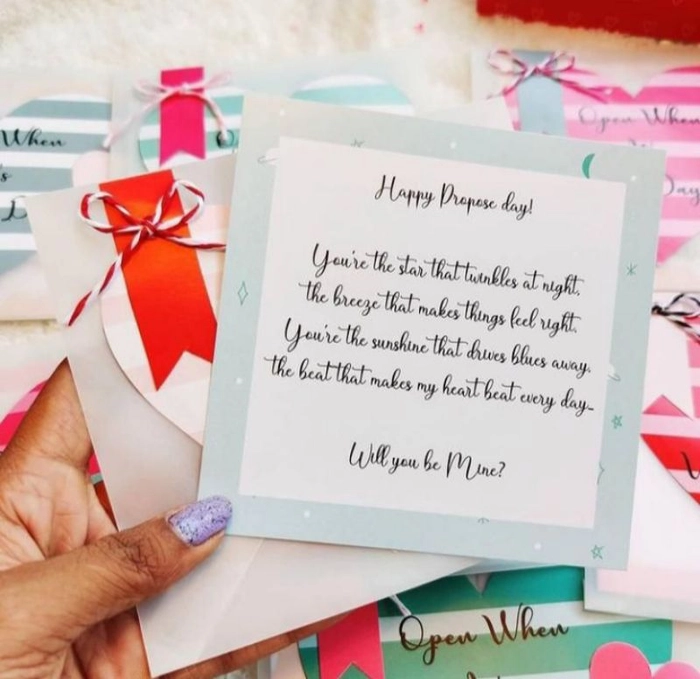 When
's
Open When
Day
Happy Propose day!
You're the star that twinkles at night,
the breeze that makes things feel right.
You're the sunshine that drives blues away.
the beat that makes my heart beat every day-
Will you be Mine?
Open When